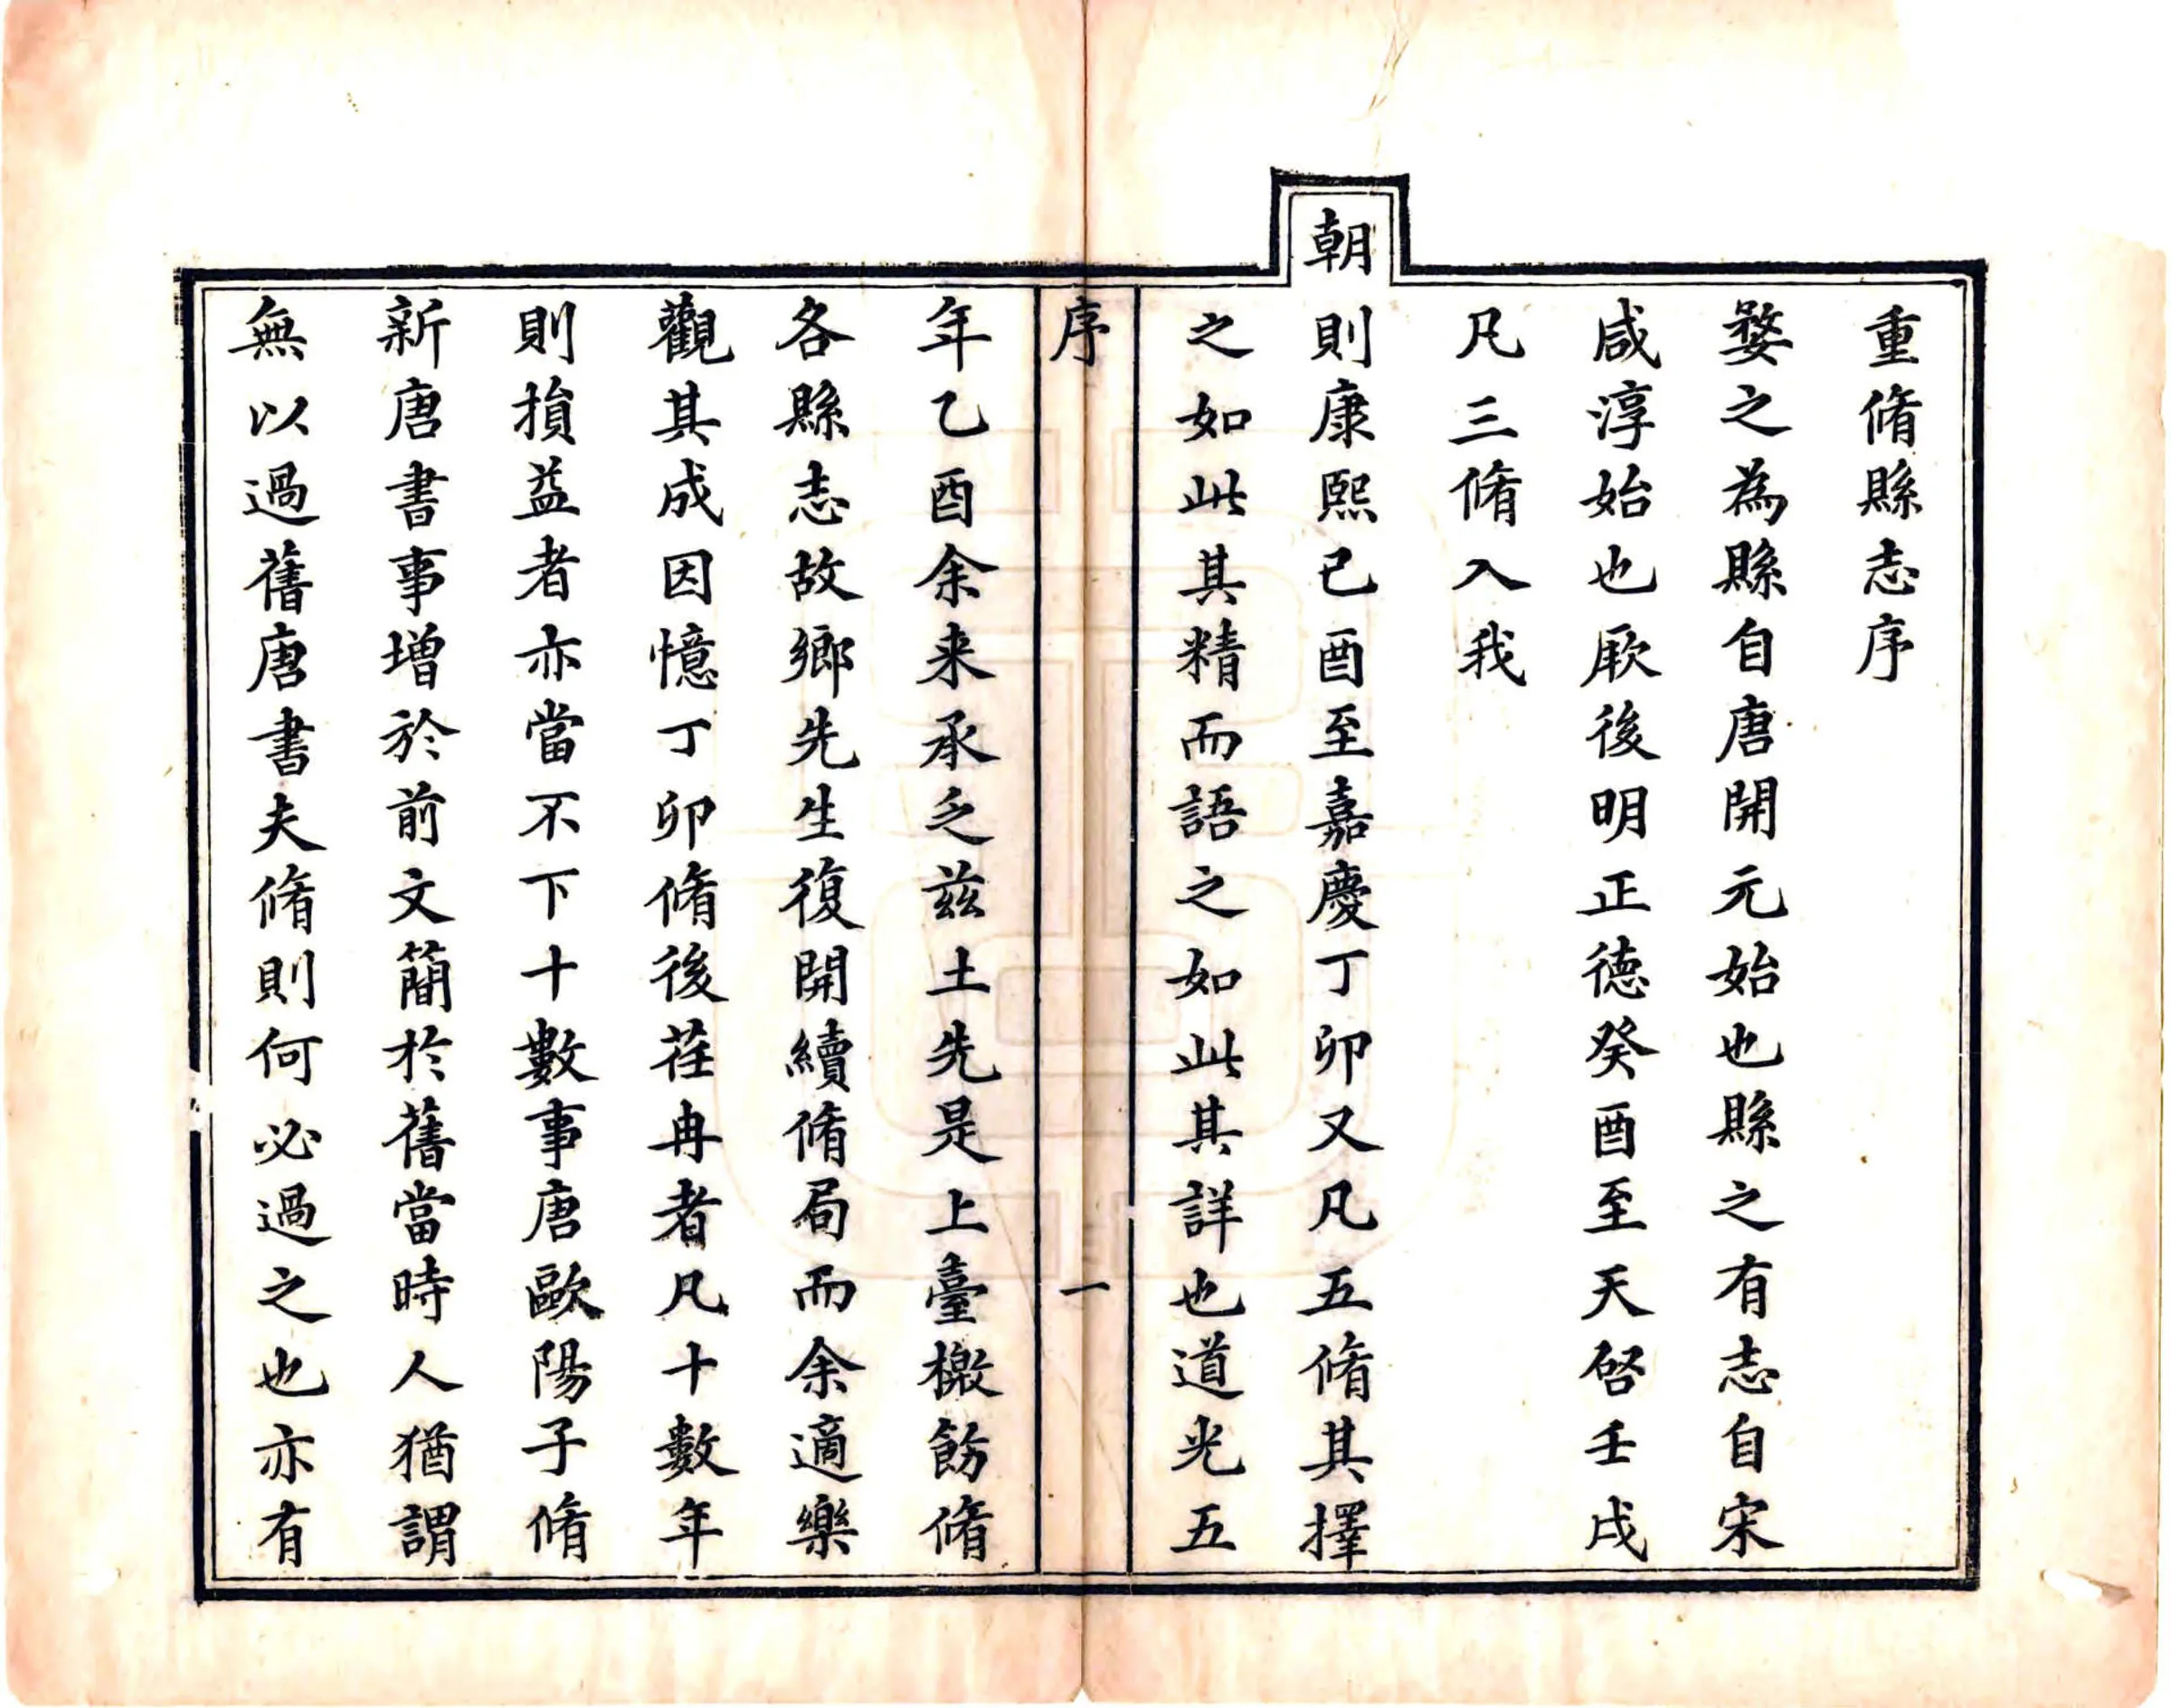 重脩縣志序
婺之為縣自唐開元始也縣之有志自宋
咸淳始也厥後明正德癸酉至天啓壬戌
凡三脩入我
朝則康熙己酉至嘉慶丁卯又凡五脩其擇
之如此其精而語之如此其詳也道光五
序 一
年乙酉余来承乏兹土先是上臺檄飭脩
各縣志故鄉先生復開續脩局而余適樂
觀其成因憶丁卯脩後荏冉者凡十數年
則損益者亦當不下十數事唐歐陽子脩
新唐書事增於前文簡於舊當時人猶謂
無以過舊唐書夫脩則何必過之也亦有